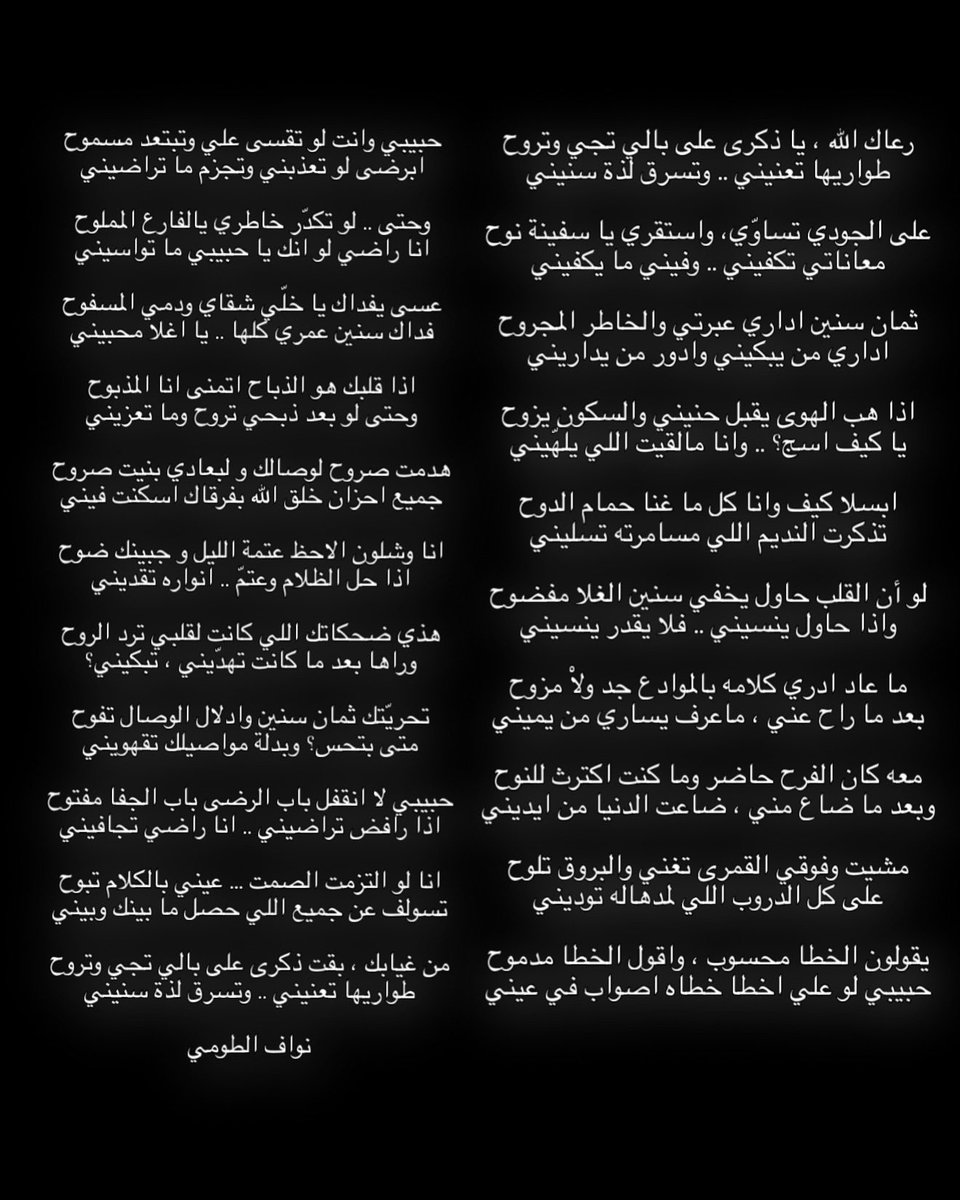 رعاك الله ، يا ذكرى على بالي تجي وتروح
طواريها تعنيني .. وتسرق لذة سنيني
على الجودي تساوّي، واستقري يا سفينة نوح
معاناتي تكفيني .. وفيني ما يكفيني
ثمان سنين اداري عبرتي والخاطر المجروح
اداري من يبكيني وادور من يداريني
اذا هب الهوى يقبل حنيني والسكون يزوح
يا كيف اسج؟ .. وانا مالقيت اللي يلهّيني
ابسلا كيف وانا كل ما غنا حمام الدوح
تذكرت النديم اللي مسامرته تسليني
لو أن القلب حاول يخفي سنين الغلا مفضوح
واذا حاول ينسيني .. فلا يقدر ينسيني
ما عاد ادري كلامه بالموادع جد ولاْ مزوح
بعد ما راح عني ، ماعرف يساري من يميني
معه كان الفرح حاضر وما كنت اكترث للنوح
وبعد ما ضاع مني ، ضاعت الدنيا من ايديني
مشيت وفوقي القمرى تغني والبروق تلوح
على كل الدروب اللي لمدهاله توديني
يقولون الخطا محسوب ، واقول الخطا مدموح
حبيبي لو علي اخطا خطاه اصواب في عيني
حبيبي وانت لو تقسى علي وتبتعد مسموح
ابرضى لو تعذبني وتجزم ما تراضيني
وحتى .. لو تكدّر خاطري يالفارع المملوح
انا راضي لو انك يا حبيبي ما تواسيني
عسى يفداك يا خلّي شقاي ودمي المسفوح
فداك سنين عمري كلها .. يا اغلا محبيني
اذا قلبك هو الذباح اتمنى انا المذبوح
وحتى لو بعد ذبحي تروح وما تعزيني
هدمت صروح لوصالك و لبعادي بنيت صروح
جميع احزان خلق الله بفرقاك اسكنت فيني
انا وشلون الاحظ عتمة الليل و جبينك ضوح
اذا حل الظلام وعتمّ .. انواره تقديني
هذي ضحكاتك اللي كانت لقلبي ترد الروح
وراها بعد ما كانت تهدّيني ، تبكيني؟
تحريّتك ثمان سنين وادلال الوصال تفوح
متى بتحس؟ وبدلة مواصيلك تقهويني
حبيبي لا انقفل باب الرضى باب الجفا مفتوح
اذا رافض تراضيني .. انا راضي تجافيني
انا لو التزمت الصمت ... عيني بالكلام تبوح
تسولف عن جميع اللي حصل ما بينك وبيني
من غيابك ، بقت ذكرى على بالي تجي وتروح
طواريها تعنيني .. وتسرق لذة سنيني
نواف الطومي